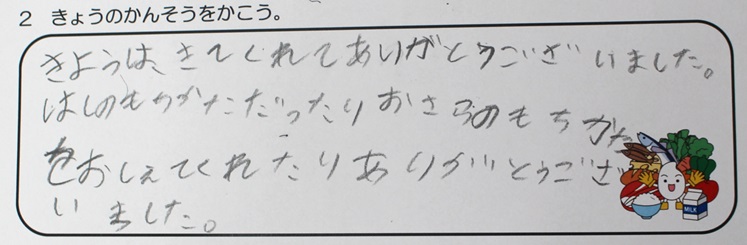 2 きょうのかんそうをかこう。
きようは、きてくれてありがとうございました。
はしのもちかただったりおさらのもちかた
をおしえてくれたりありがとうござ
いました。
MILK